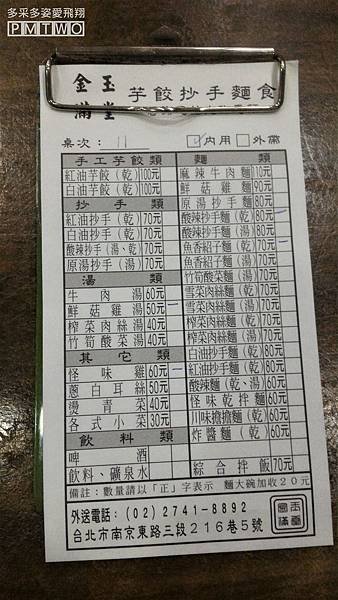 多采多姿愛飛翔
PMTWO
金玉滿堂
芋餃抄手麵食
桌次：11
內用 □外帶
手工芋餃類
紅油芋餃(乾)100元
白油芋餃(乾)100元
抄手類
紅油抄手(乾)70元
白油抄手(乾)70元
酸辣抄手(湯、乾)70元
原湯抄手(湯)70元
湯類
牛肉湯60元
鮮菇雞湯50元
榨菜肉絲湯40元
竹筍酸菜湯40元
其它類
怪味雞60元
蔥白耳絲50元
燙青菜40元
各式小菜30元
飲料類
啤酒
飲料、礦泉水
麵類
麻辣牛肉麵110元
鮮菇雞麵90元
原湯抄手麵80元
酸辣抄手麵(乾)80元
酸辣抄手麵(湯)80元
魚香紹子麵(乾)70元
魚香紹子麵(湯)70元
竹筍酸菜麵(湯)70元
雪菜肉絲麵(乾)70元
雪菜肉絲麵(湯)70元
榨菜肉絲麵(乾)70元
榨菜肉絲麵(湯)70元
白油抄手麵(乾)80元
紅油抄手麵(乾)80元
酸辣麵(乾、湯)60元
怪味乾拌麵(乾)60元
川味擔擔麵(乾)60元
炸醬麵(乾)60元
綜合拌飯70元
備註：數量請以「正」字表示 麵大碗加收20元
外送電話：(02)2741-8892
台北市南京東路三段216巷5號